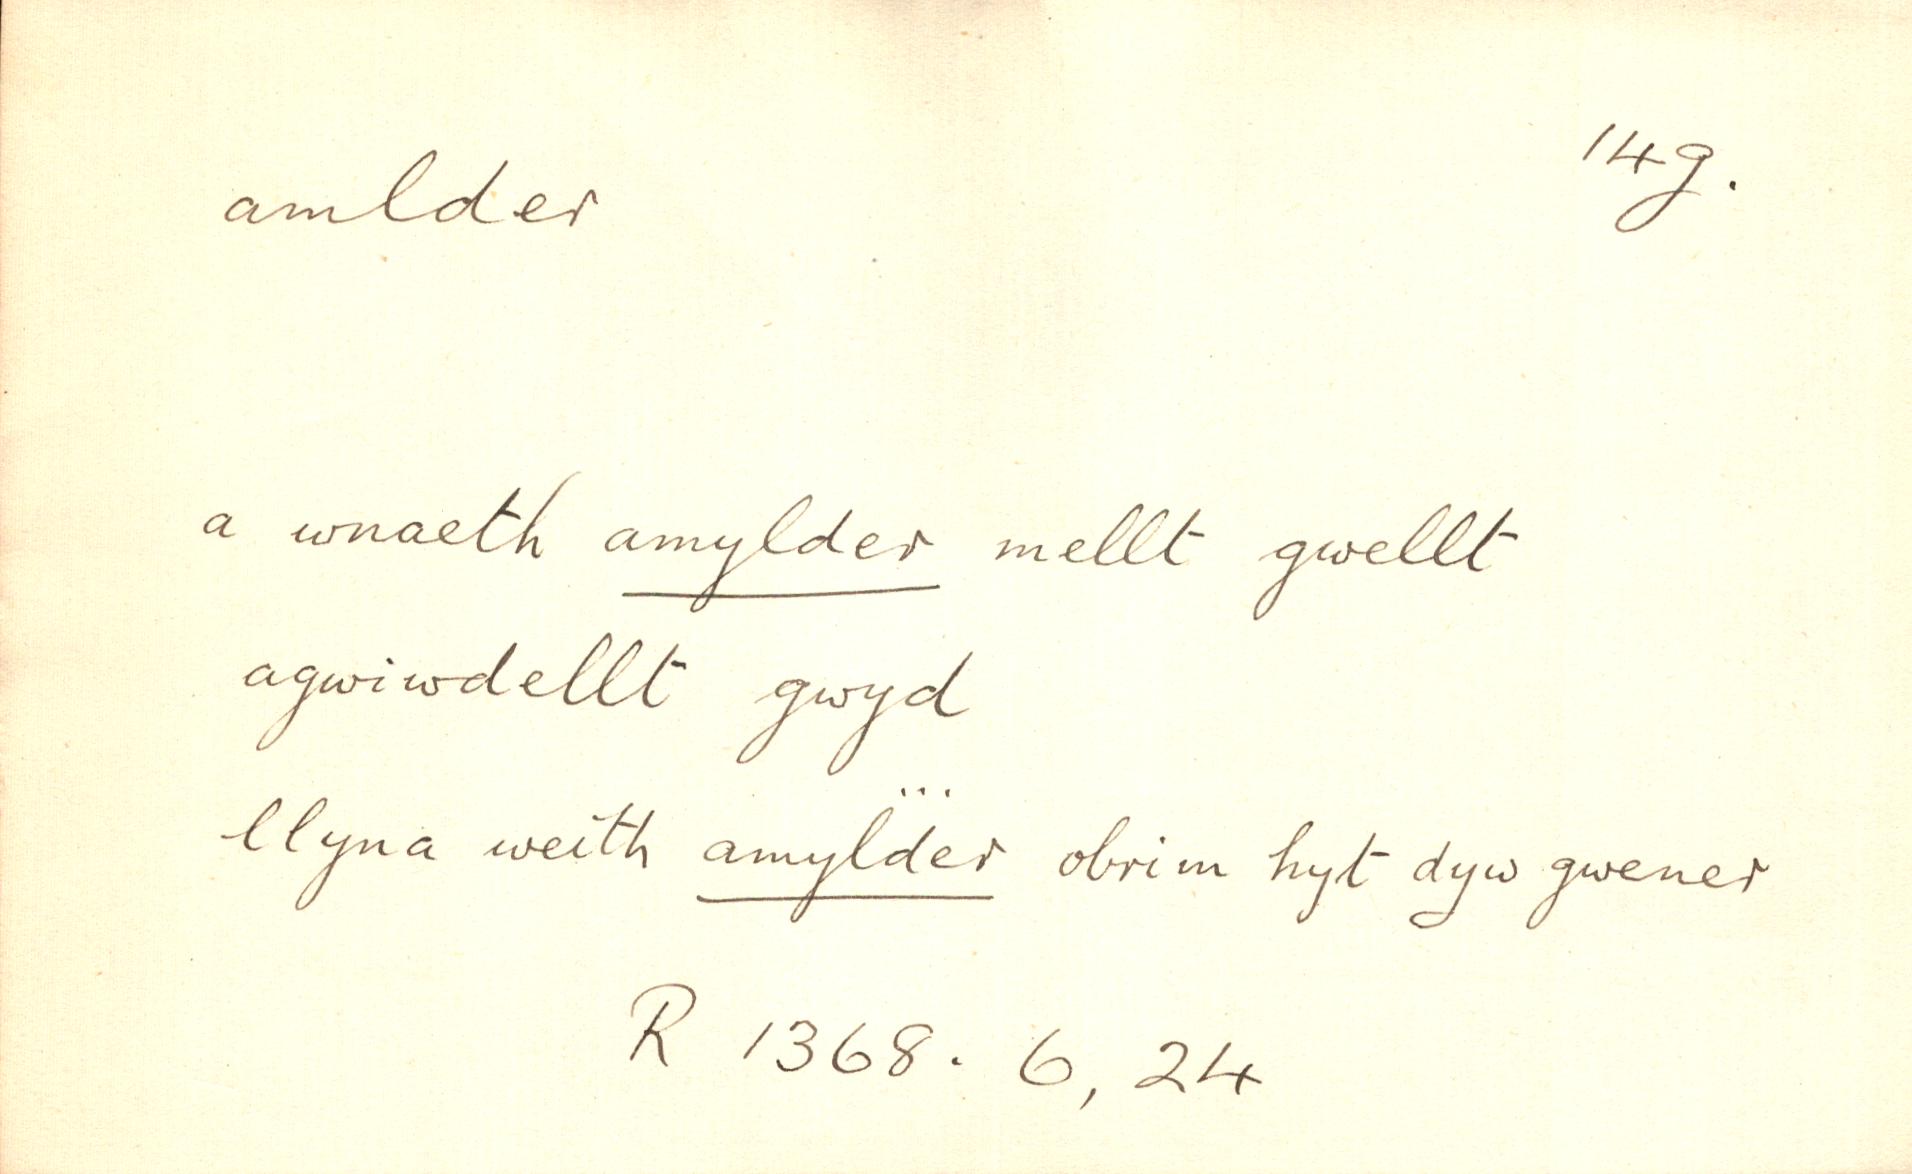 amlder 14g.
a wnaeth amylder mellt gwellt
agwiwdellt gwyd
...
llyna weith amylder obrim hyt dyw gwener
R 1368. 6, 24